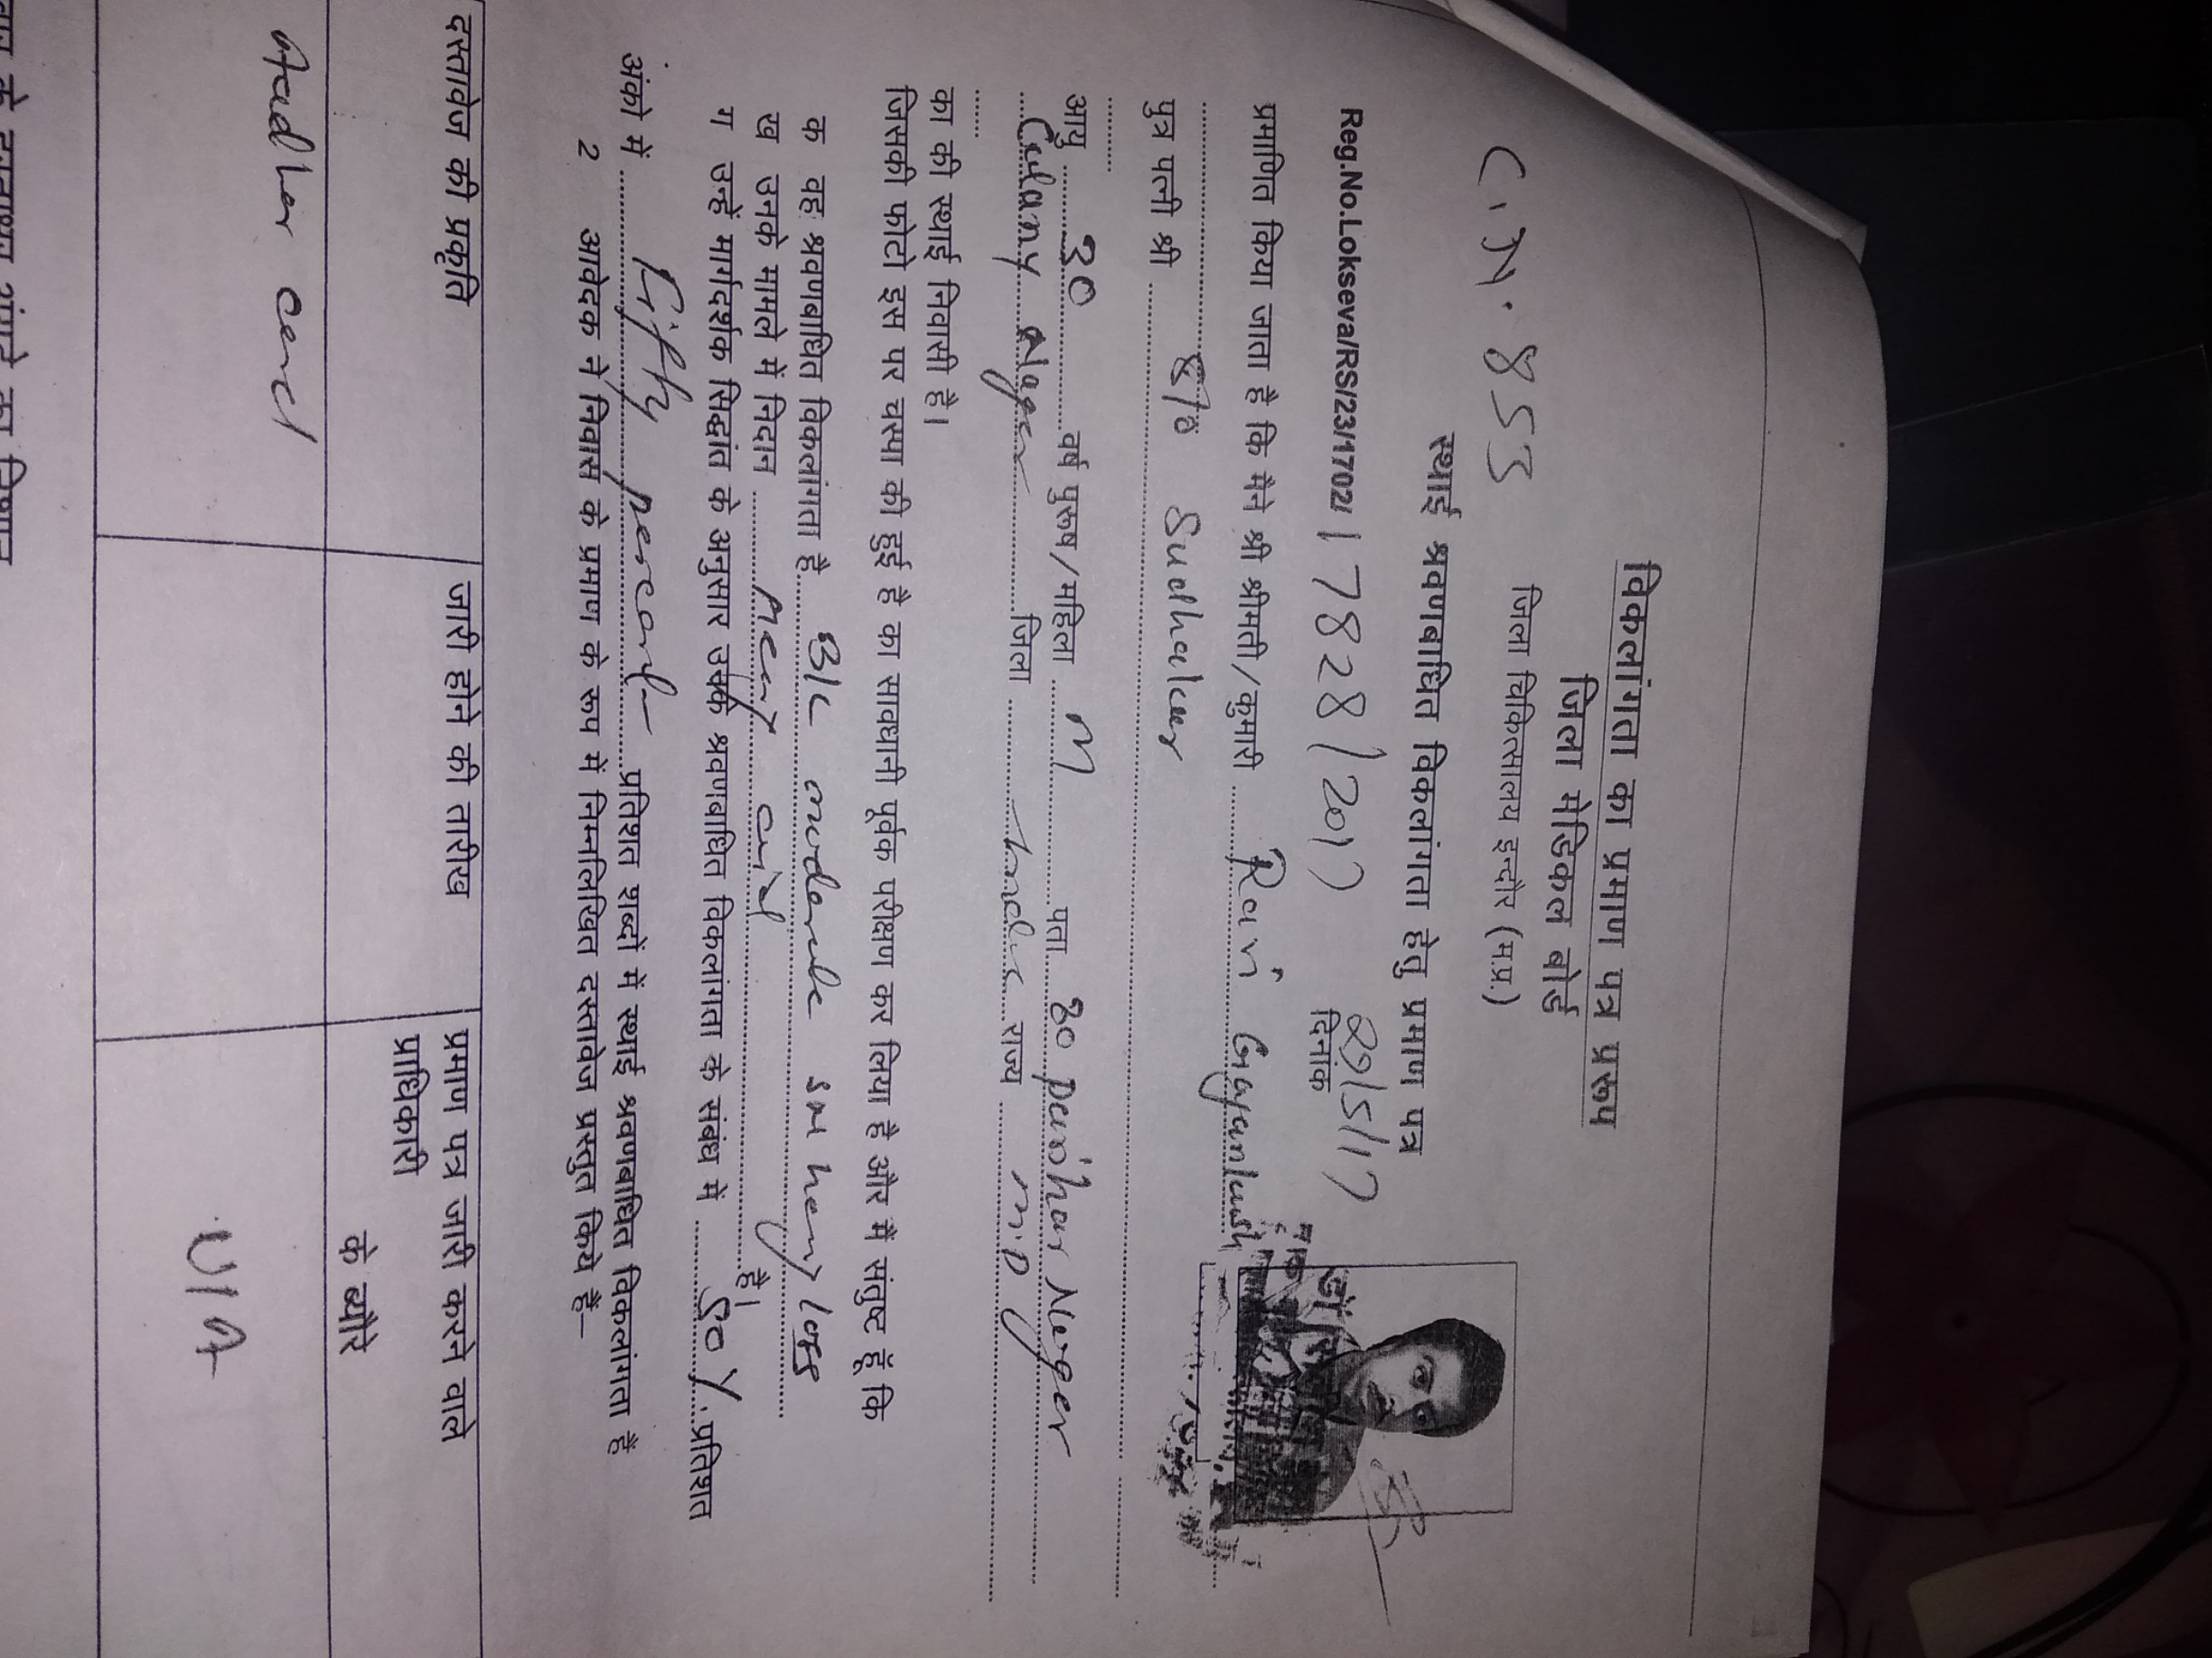 विकलांगता का प्रमाण पत्र प्ररूप
जिला मेडिकल बोर्ड
जिला चिकित्सालय इन्दौर (म.प्र.)
C.N. 853
स्थाई श्रवणबाधित विकलांगता हेतु प्रमाण पत्र
Reg.No.Lokseva/RS/23/1702/17828/2017 दिनांक 29/5/17
प्रमाणित किया जाता है कि मैने श्री श्रीमती/कुमारी Ravi
पुत्र पत्नी श्री S/o Sudhakar
आयु 20 वर्ष पुरूष/महिला M पता 80 Nager
Nager जिला राज्य M.P
का की स्थाई निवासी है।
जिसकी फोटो इस पर चस्पा की हुई है का सावधानी पूर्वक परीक्षण कर लिया है और मैं संतुष्ट हूं कि
क वह श्रवणबाधित विकलांगता है B/L loss
ख उनके मामले में निदान aid है।
ग उन्हें मार्गदर्शक सिद्धांत के अनुसार उसके श्रवणबाधित विकलांगता के संबंध में 50%. प्रतिशत
अंको में Fifty percent प्रतिशत शब्दों में स्थाई श्रवणबाधित विकलांगता है
2 आवेदक ने निवास के प्रमाण के रूप में निम्नलिखित दस्तावेज प्रस्तुत किये हैं–
दस्तावेज की प्रकृति जारी होने की तारीख प्रमाण पत्र जारी करने वाले
प्राधिकारी
के ब्यौरे
Aadhar card